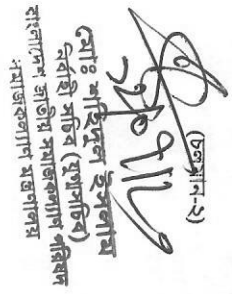 (চলমান-২)
মোঃ শহিদুল ইসলাম
নির্বাহী সচিব (যুগ্মসচিব)
বাংলাদেশ জাতীয় সমাজকল্যাণ পরিষদ
সমাজকল্যাণ মন্ত্রণালয়